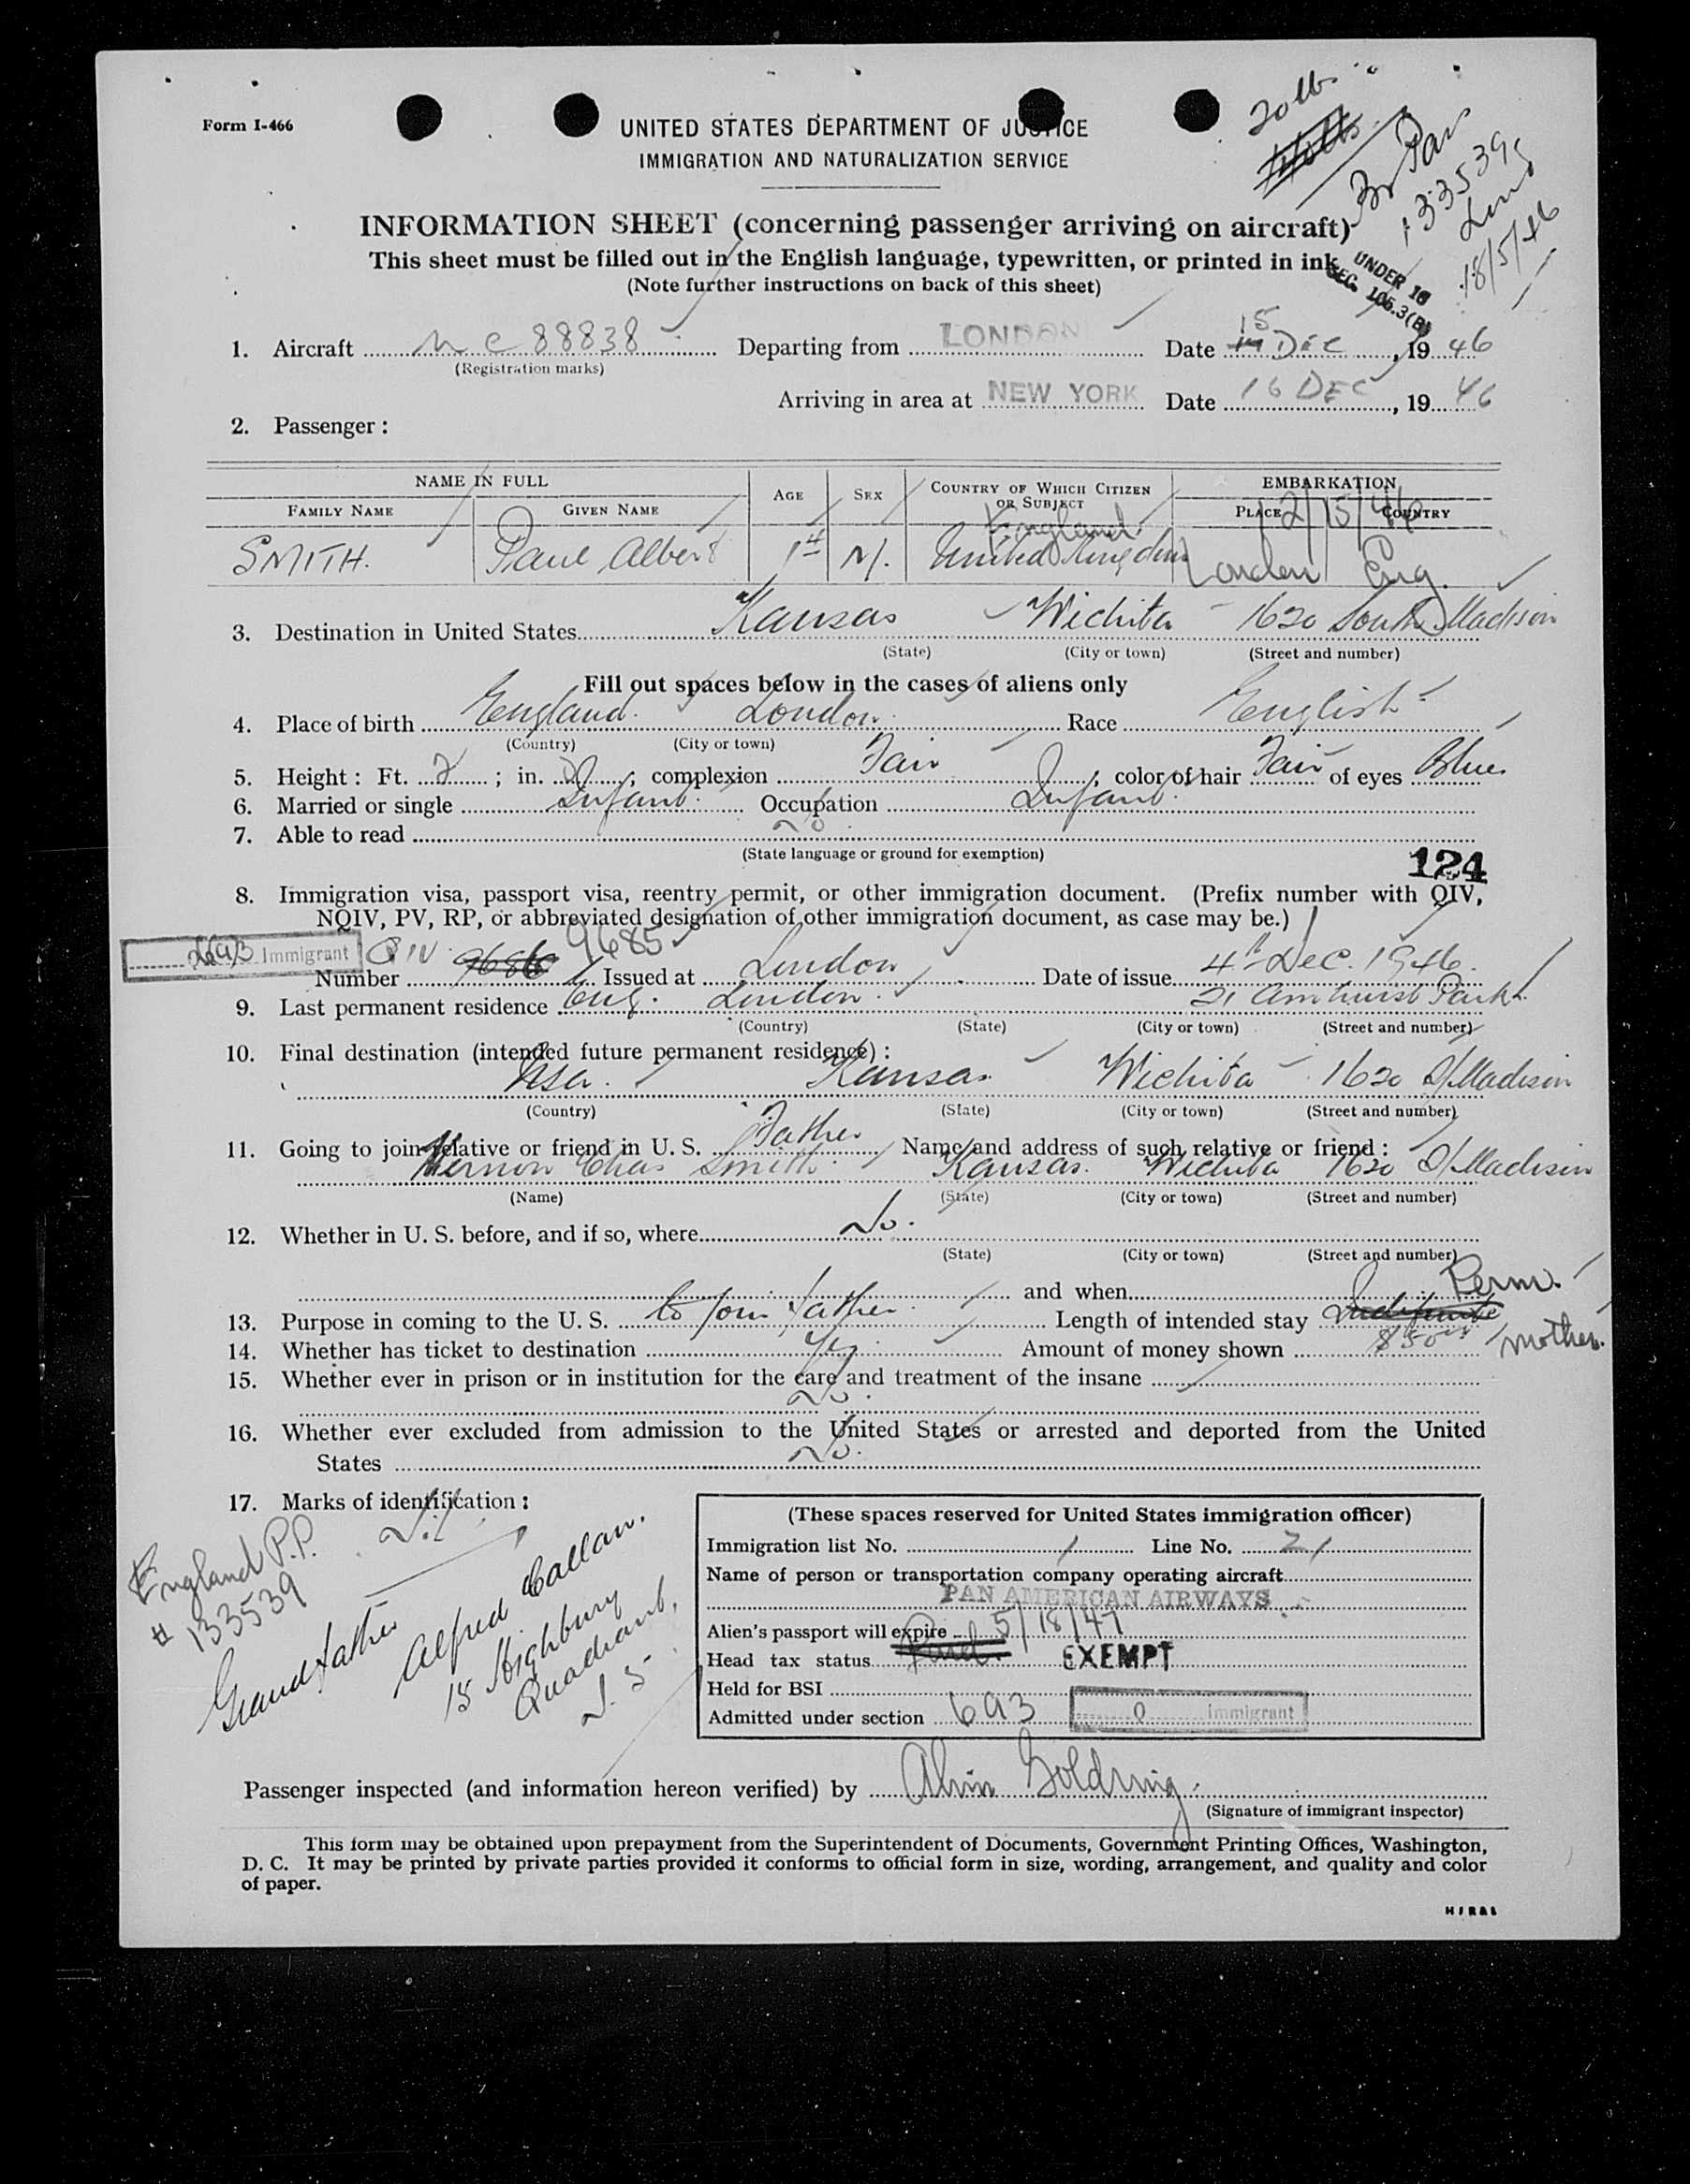 Form I-466
UNITED STATES DEPARTMENT OF JUSTICE
IMMIGRATION AND NATURALIZATION SERVICE
20 lbs
Br Pass
133539
Lond
18/5/46
INFORMATION SHEET (concerning passenger arriving on aircraft)
This sheet must be filled out in the English language, typewritten, or printed in ink.
(Note further instructions on back of this sheet)
UNDER 16
SEC. 105.3(B)
1. Aircraft NC 88838 Departing from LONDON Date 15 DEC, 1946
(Registration marks)
Arriving in area at NEW YORK Date 16 DEC, 1946
2. Passenger:
NAME IN FULL AGE SEX COUNTRY OF WHICH CITIZEN OR SUBJECT EMBARKATION
FAMILY NAME GIVEN NAME PLACE COUNTRY
England 12/15/46
SMITH. Paul Albert M. United Kingdom London Eng.
3. Destination in United States Kansas Wichita 1620 South Madison
(State) (City or town) (Street and number)
Fill out spaces below in the cases of aliens only
4. Place of birth England London Race English
(Country) (City or town)
5. Height: Ft. 2; in.; complexion Fair; color of hair Fair of eyes Blue
6. Married or single Infant. Occupation Infant.
7. Able to read No
(State language or ground for exemption)
124
8. Immigration visa, passport visa, reentry permit, or other immigration document. (Prefix number with QIV,
NQIV, PV, RP, or abbreviated designation of other immigration document, as case may be.)
6A3 Immigrant QIV 9685
Number 9686 Issued at London Date of issue 4th Dec. 1946.
9. Last permanent residence Eng. London. 21 Amhurst Park
(Country) (State) (City or town) (Street and number)
10. Final destination (intended future permanent residence):
Usa. Kansas Wichita 1620 S/Madison
(Country) (State) (City or town) (Street and number)
11. Going to join relative or friend in U. S. Father Name and address of such relative or friend:
Vernon Chas Smith. Kansas. Wichita 1620 S/Madison
(Name) (State) (City or town) (Street and number)
12. Whether in U. S. before, and if so, where No.
(State) (City or town) (Street and number)
and when
Perm.
13. Purpose in coming to the U. S. to join father. Length of intended stay Indefinite
14. Whether has ticket to destination Yes Amount of money shown $50 mother.
15. Whether ever in prison or in institution for the care and treatment of the insane
No
16. Whether ever excluded from admission to the United States or arrested and deported from the United
States No.
17. Marks of identification:
Nil
England P.P.
# 133539
Grandfather
Alfred Callan.
15 Highbury
Quadrant,
N. 5
(These spaces reserved for United States immigration officer)
Immigration list No. 1 Line No. 21
Name of person or transportation company operating aircraft
PAN AMERICAN AIRWAYS
Alien's passport will expire 5/18/47
Head tax status Paid. EXEMPT
Held for BSI
Admitted under section 6A3 Q Immigrant
Passenger inspected (and information hereon verified) by Alvin Goldring.
(Signature of immigrant inspector)
This form may be obtained upon prepayment from the Superintendent of Documents, Government Printing Offices, Washington,
D. C. It may be printed by private parties provided it conforms to official form in size, wording, arrangement, and quality and color
of paper.